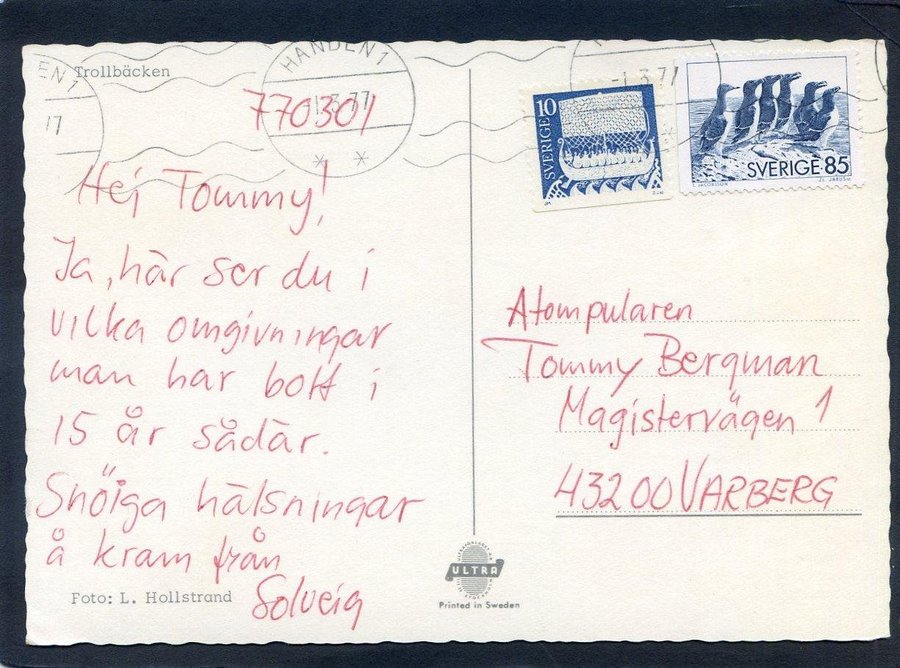 Trollbäcken
EN 1
77
HANDEN 1
-1.3.77
770301
-1.3.77
Hej Tommy!
Ja, här ser du i
vilka omgivningar
man har bott i
15 år sådär.
Snöiga hälsningar
å kram från
Solveig
Foto: L. Hollstrand
SVERIGE 10
SVERIGE 85
Atompularen
Tommy Bergman
Magistervägen 1
43200 VARBERG
ULTRA
Printed in Sweden